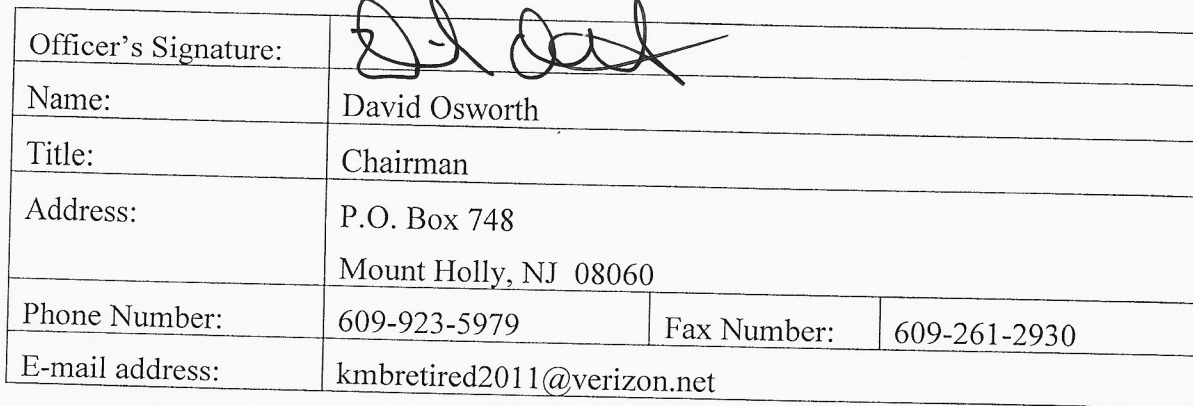 Officer's Signature:
Name: David Osworth
Title: Chairman
Address: P.O. Box 748
Mount Holly, NJ 08060
Phone Number: 609-923-5979 Fax Number: 609-261-2930
E-mail address: kmbretired2011@verizon.net